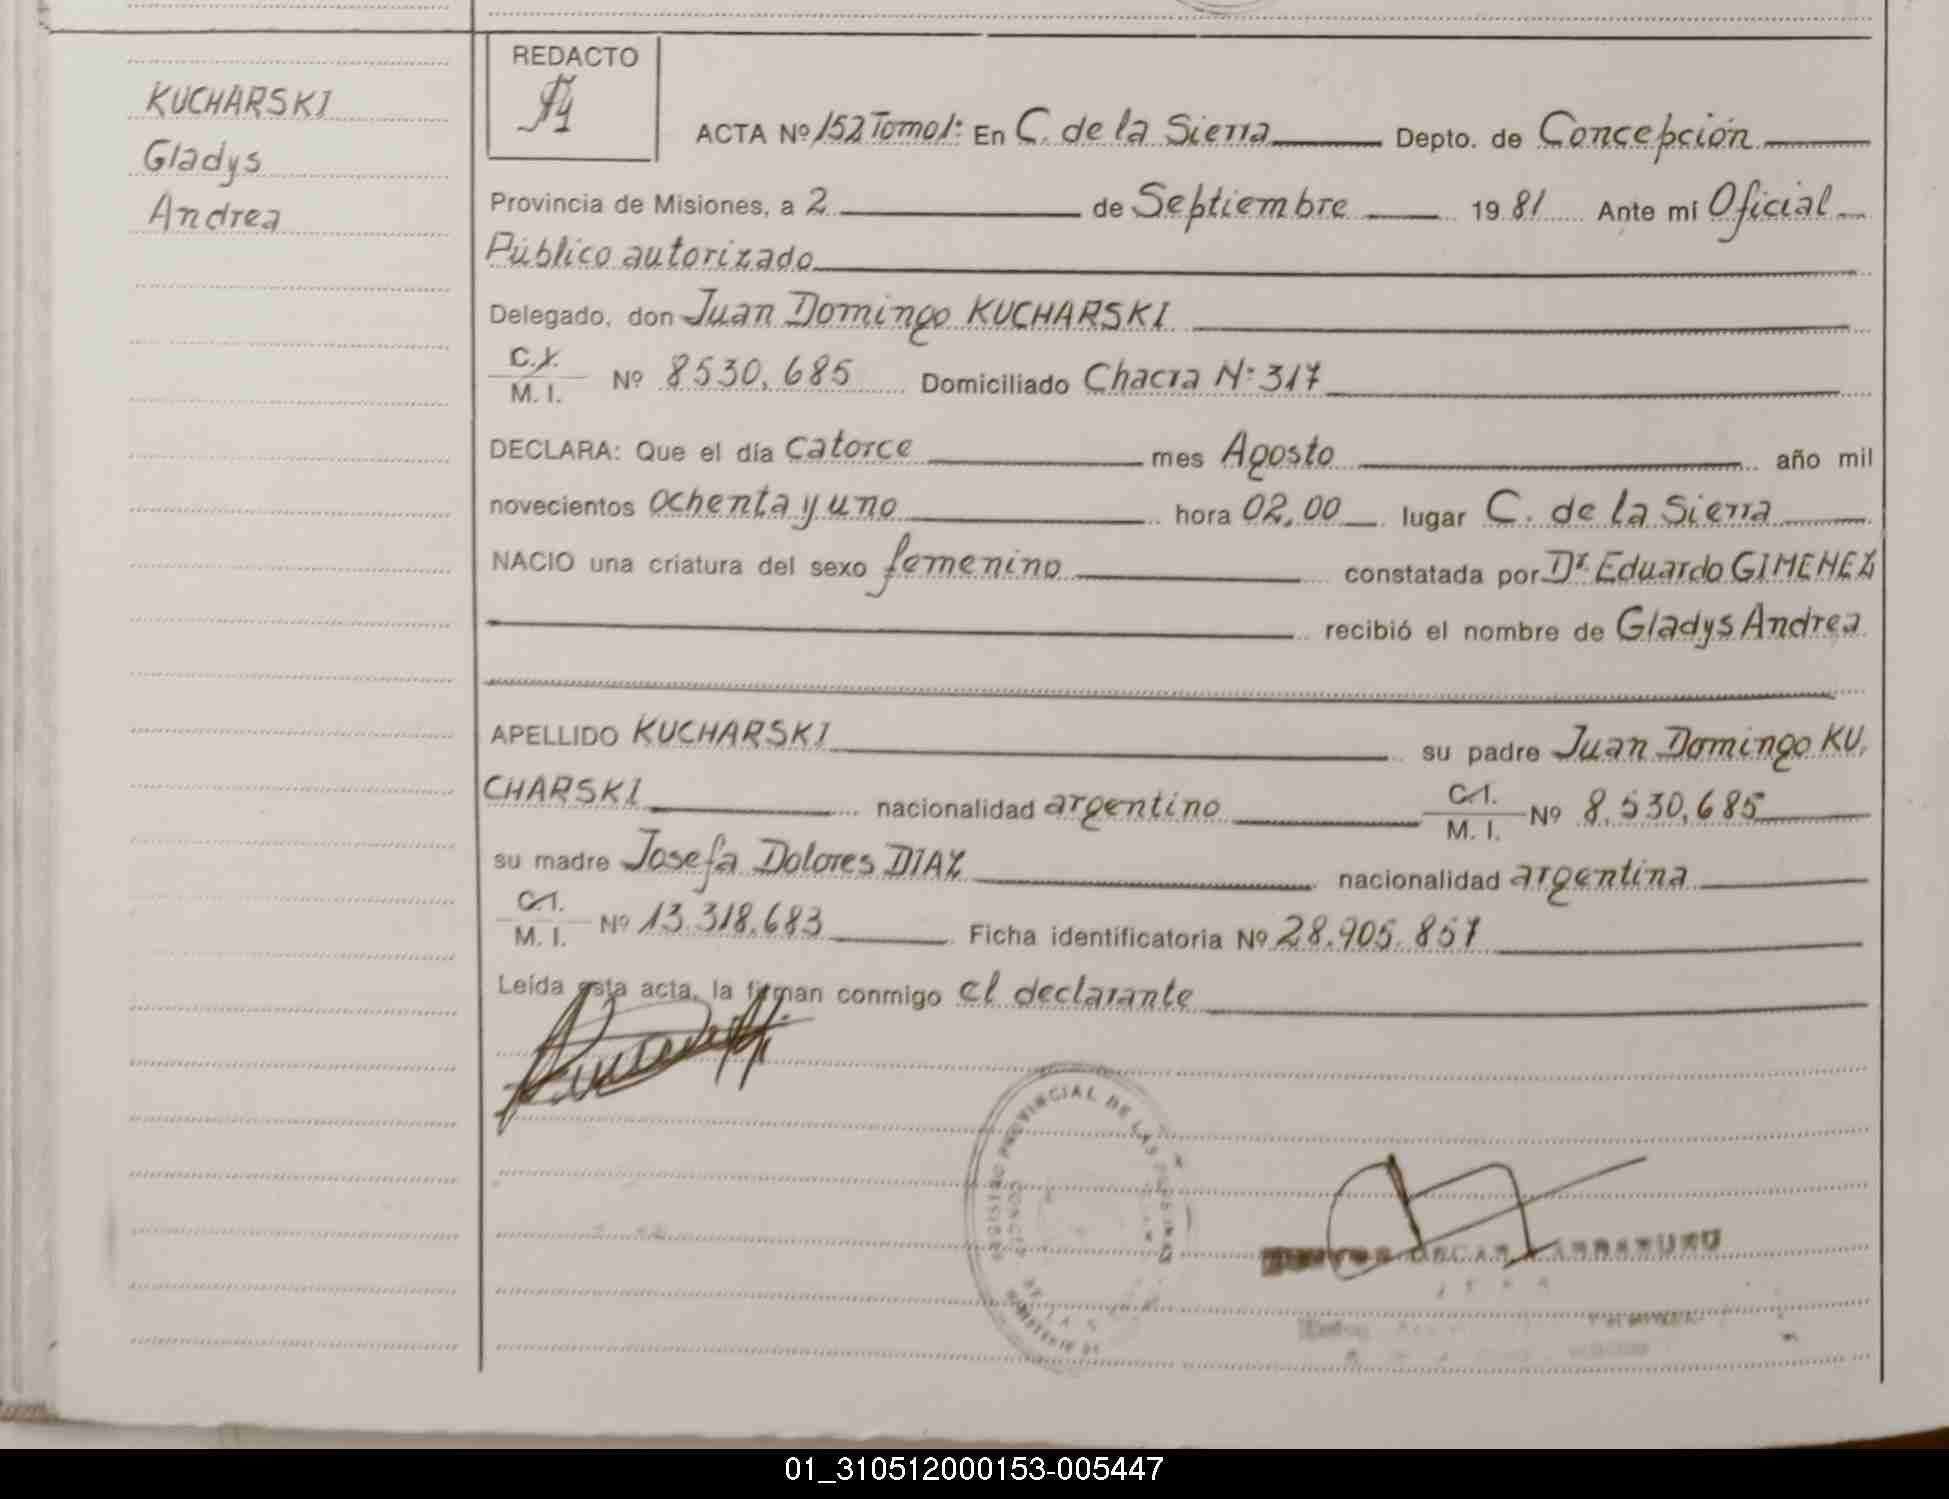 KUCHARSKI
Gladys
Andrea
REDACTO
ACTA Nº 152 Tomo 1: En C. de la Sierra Depto. de Concepción
Provincia de Misiones, a 2 de Septiembre 19 81 Ante mí Oficial
Público autorizado
Delegado, don Juan Domingo KUCHARSKI
C.I.
M. I. Nº 8530,685 Domiciliado Chacra Nº 317
DECLARA: Que el día catorce mes Agosto año mil
novecientos ochenta y uno hora 02,00 lugar C. de la Sierra
NACIO una criatura del sexo femenino constatada por Dr. Eduardo GIMENEZ
recibió el nombre de Gladys Andrea
APELLIDO KUCHARSKI su padre Juan Domingo KU,
CHARSKI nacionalidad argentino C.I. M. I. Nº 8.530,685
su madre Josefa Dolores DIAZ nacionalidad argentina
C.I.
M. I. Nº 13.318.683 Ficha identificatoria Nº 28.905.857
Leída esta acta, la firman conmigo el declarante
REGISTRO PROVINCIAL DE LAS PERSONAS
OSCAR
01_310512000153-005447